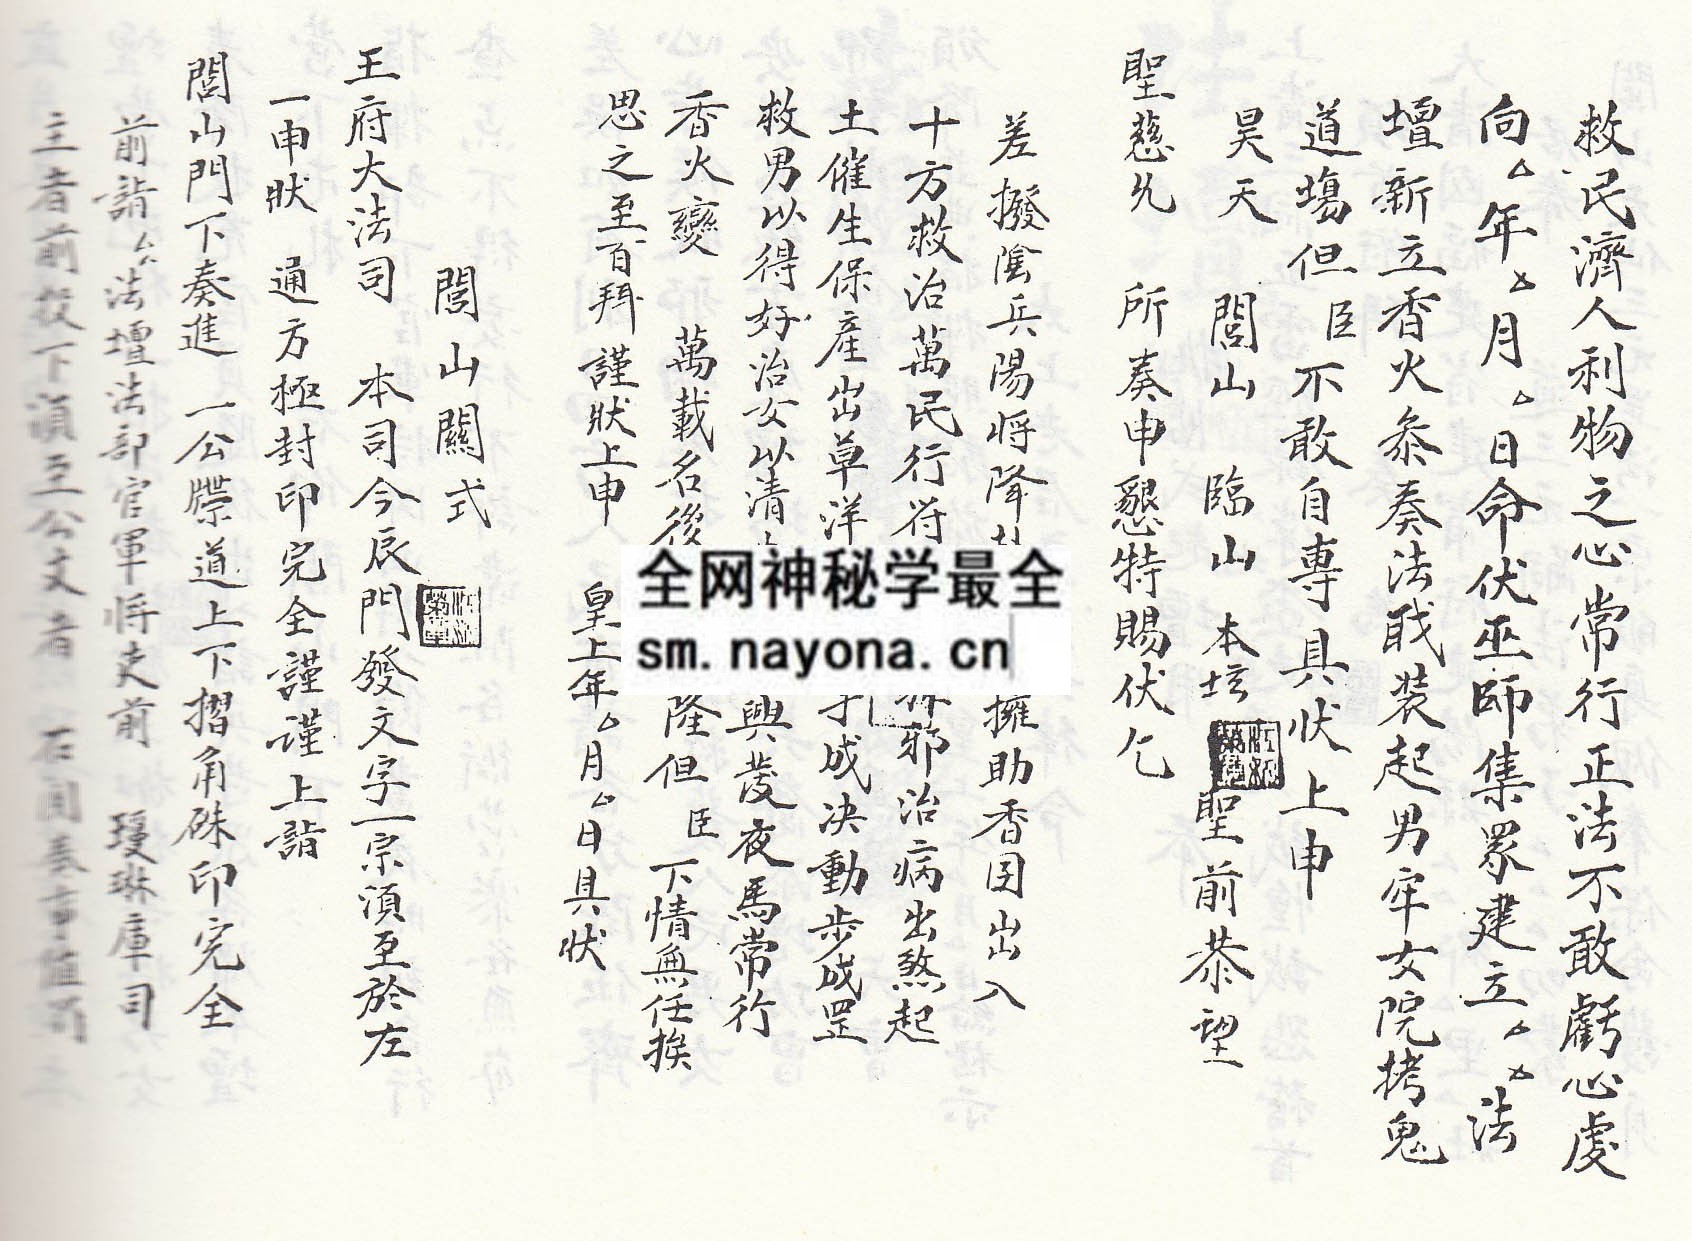 救民濟人利物之心常行正法不敢虧心處
向△年△月△日命伏巫師集眾建立△△法
壇新立香火叅奏法職裝起男牢女院拷鬼
道場但臣不敢自專具状上申
昊天 閭山 臨山本坛 聖前恭望
聖慈允 所奏申懇特賜伏乞
差撥陰兵陽将降 擁助香田出入
十方救治萬民行符 邪治病出煞起
土催生保産出草洋 成决動步成罡
救男以得好治女以清 興發夜馬常行
香火變 萬載名後 隆但臣下情無任挨
思之至百拜謹狀上申 皇上年△月△日具狀
閭山關式
王府大法司 本司今辰門發文字一宗湏至於左
一申狀 通方極封印完全謹謹上詣
閭山門下奏進 一公牒道上下摺角硃印完全
前詣△△法壇法部官軍将吏前 琼琳庫司
主者前投下湏至公文者 右
全网神秘学最全
sm.nayona.cn